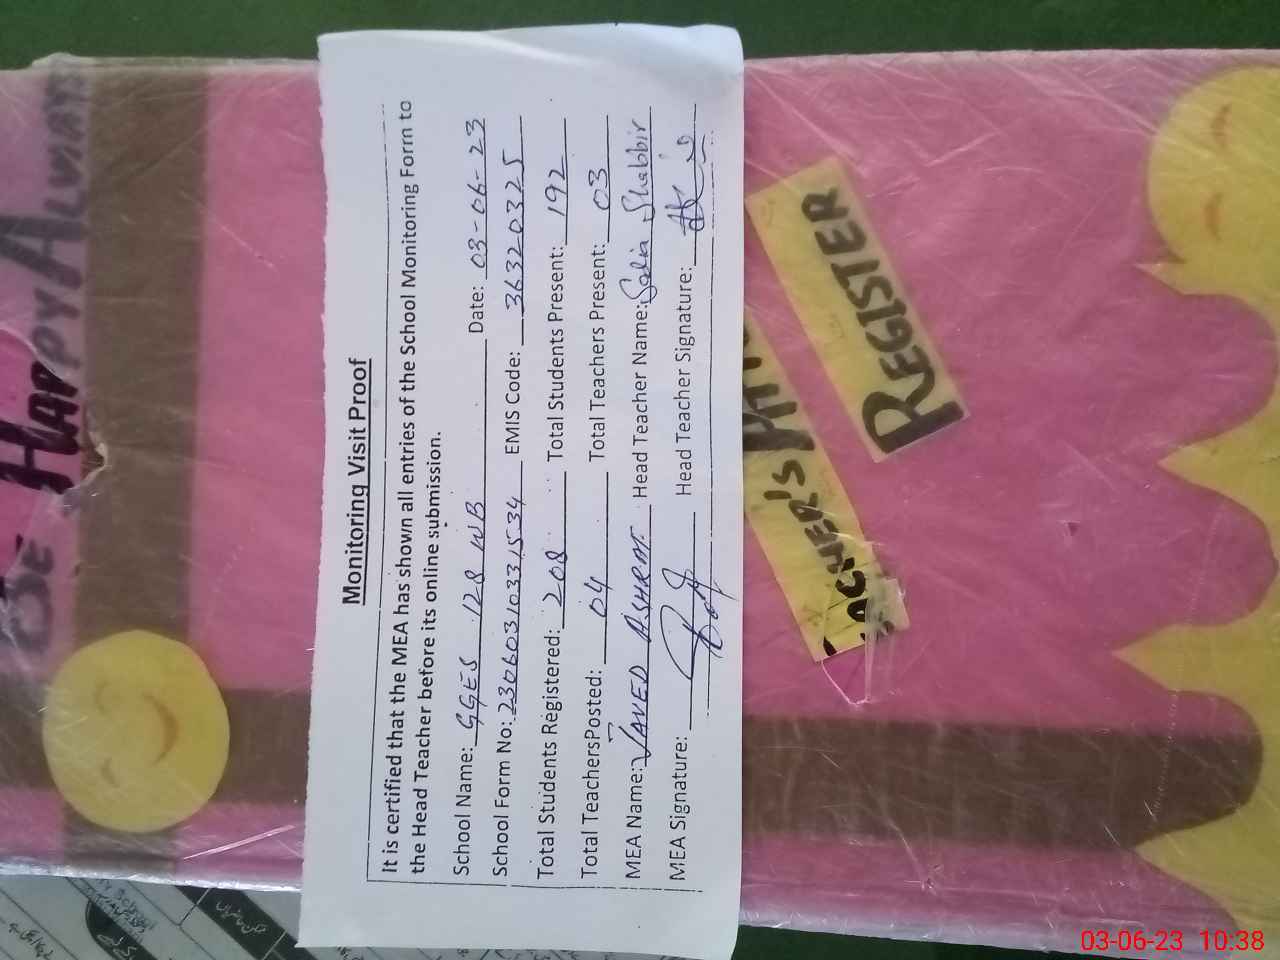 Monitoring Visit Proof
It is certified that the MEA has shown all entries of the School Monitoring Form to
the Head Teacher before its online submission.
School Name: GGES 128 WB Date: 03-06-23
School Form No: 23060310331534 EMIS Code: 36320325
Total Students Registered: 208 Total Students Present: 192
Total TeachersPosted: 04 Total Teachers Present: 03
MEA Name: JAVED ASHRAF Head Teacher Name: Safia Shabbir
MEA Signature: Head Teacher Signature:
BE HAPPY ALWAYS
REGISTER
03-06-23 10:38